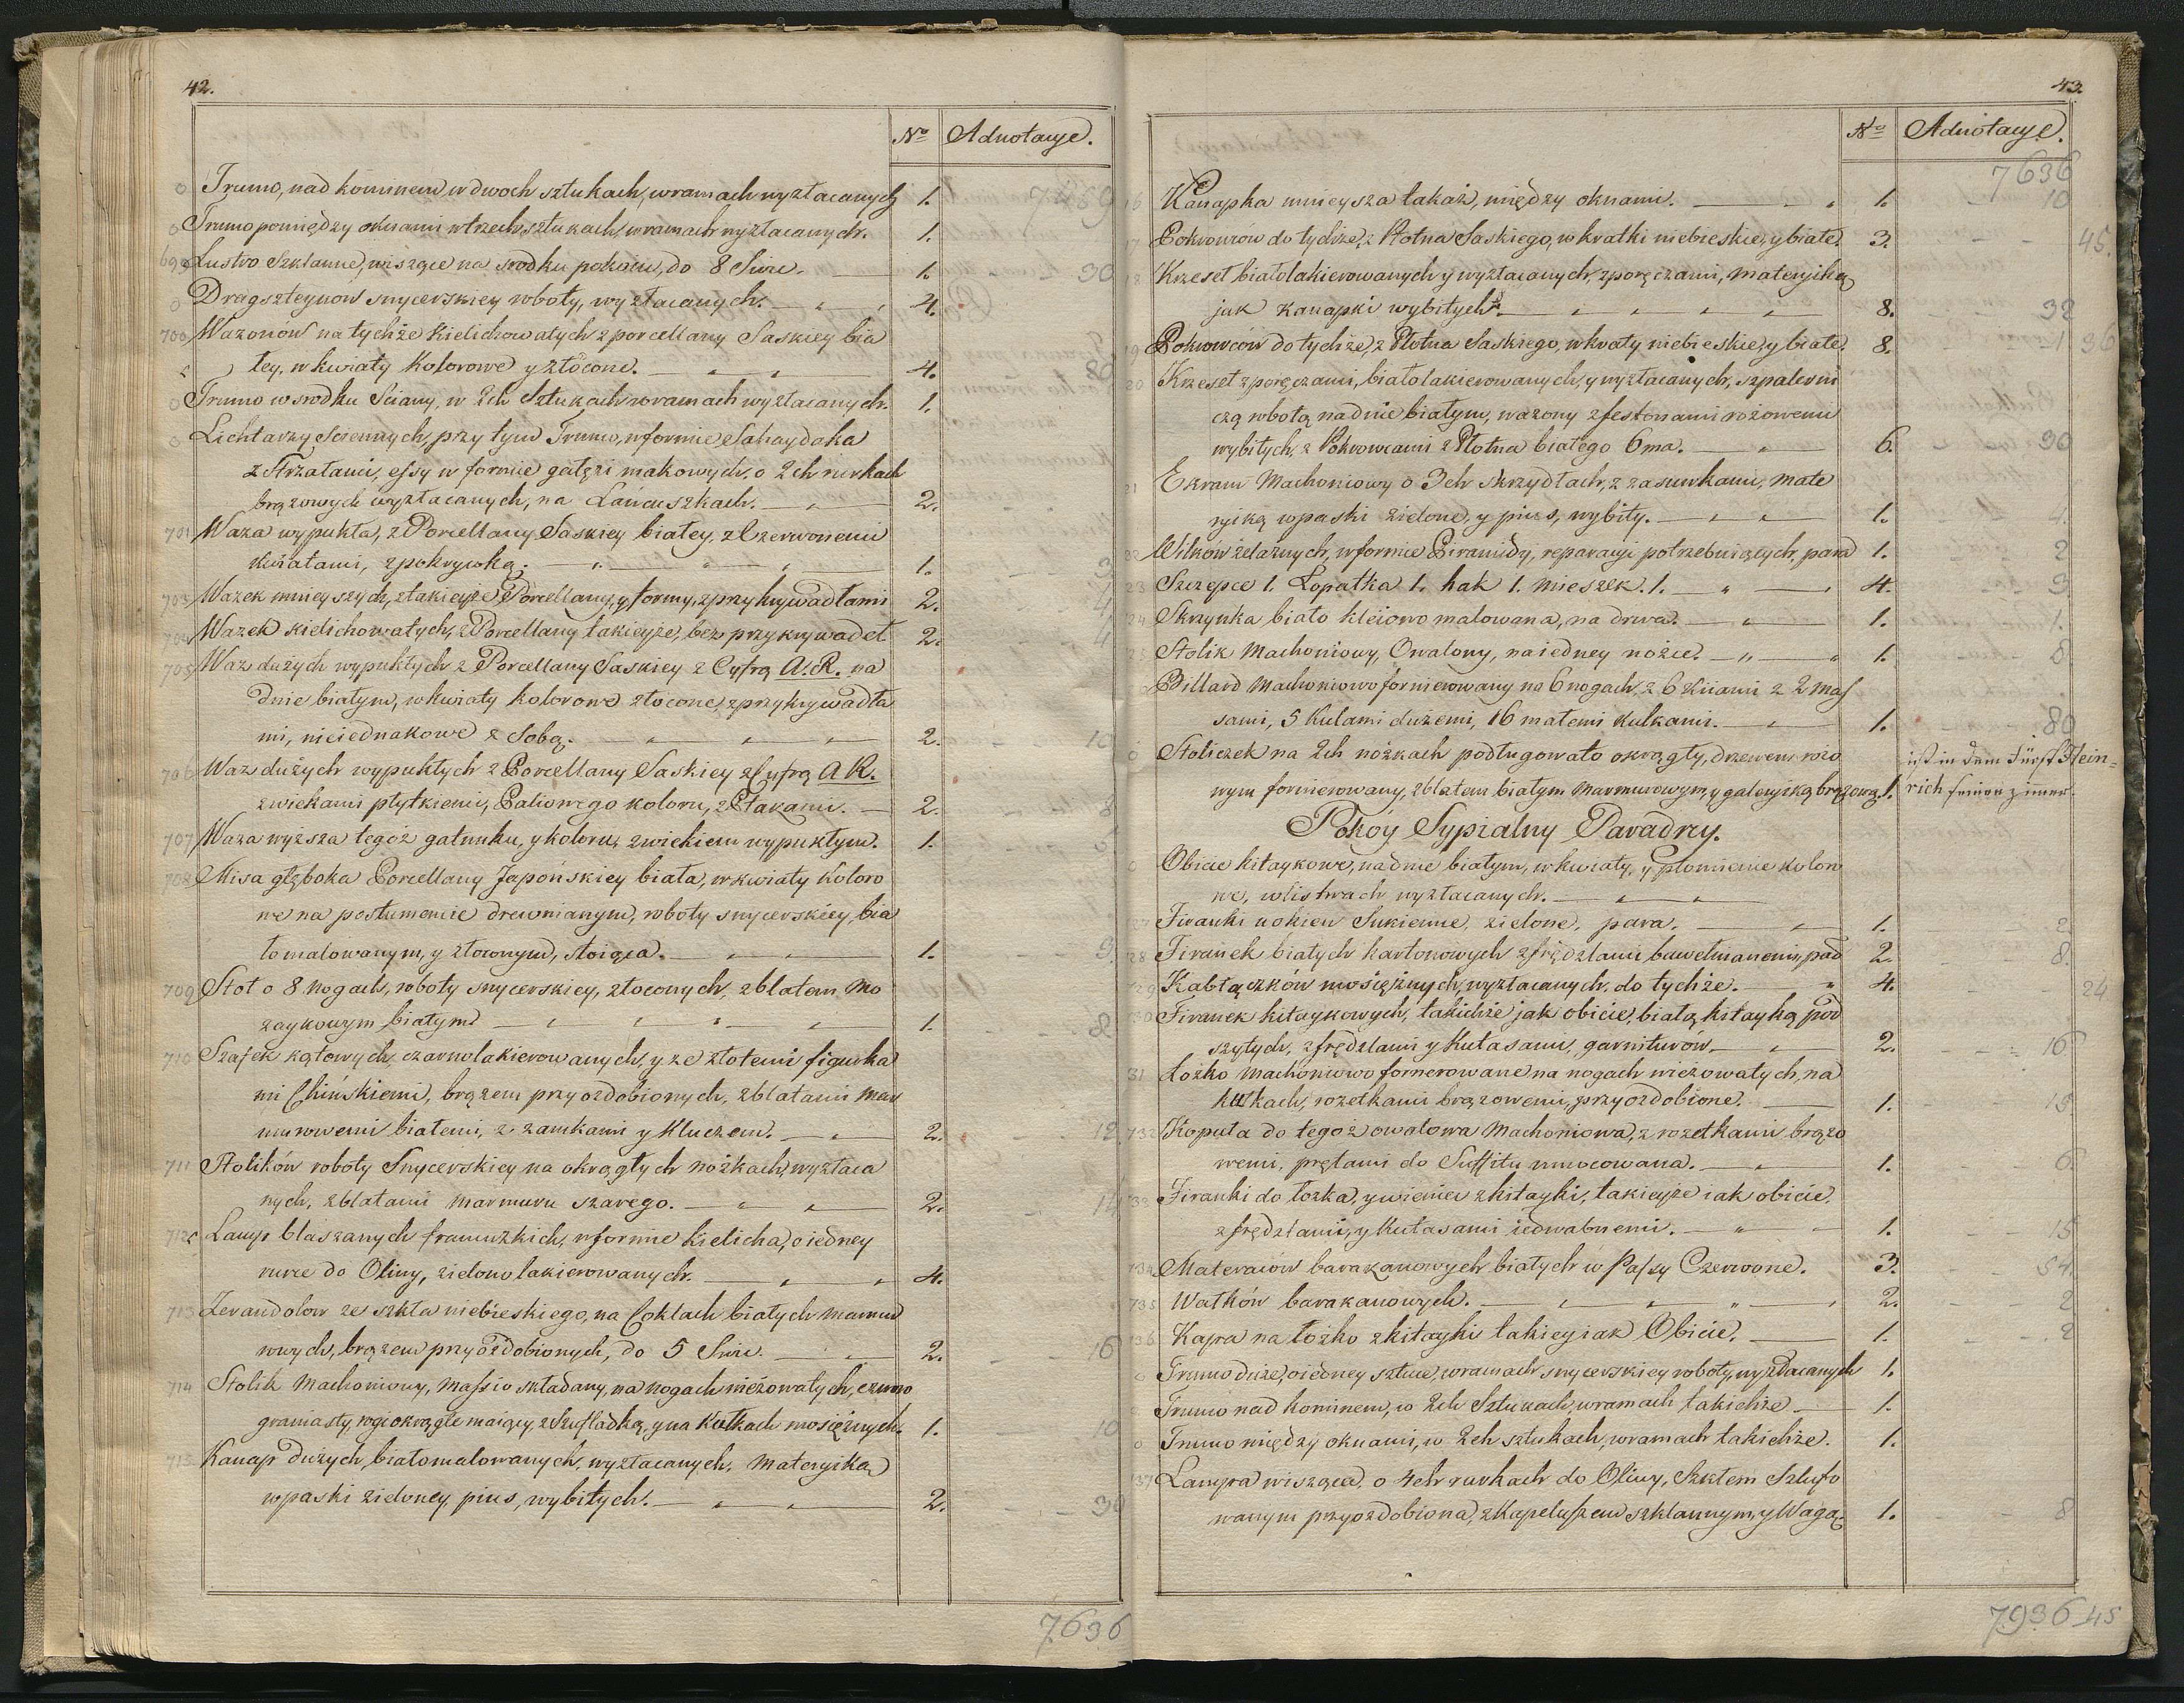 42.
No Adnotacye.
7469
0 Trumo, nad kominem, w dwoch sztukach, w ramach wyzłacanych 1.
0 Trumo pomiędzy oknami w trzech sztukach, w ramach wyzłacanych. 1.
699 Lustro Szklanne, wiszące na srodku pokoiu, do 8 Swiec. 1. 30
0 Dragszteynow snycerskiey roboty, wyzłacanych. 4.
700 Wazonow na tychże Kielichowatych z porcellany Saskiey bia
łey, w kwiaty Kolorowe y złocone. 4. 80
0 Trumo w srodku Sciany, w 2ch Sztukach w ramach wyzłacanych. 1.
0 Lichtarzy Sciennych, przy tym Trumo, w formie Sahaydaka
z Strzałami, essy w formie gałęzi makowych, o 2ch rurkach
brązowych wyzłacanych, na Łańcuszkach. 2.
701 Waza wypukła, z Porcellany Saskiey białey, z Czerwonemi
kwiatami, z pokrywką. 1. 3
703 Wazek mnieyszych, z takieyże Porcellany, y formy, z przykrywadłami 2. 4
704 Wazek kielichowatych, z Porcellany takieyże, bez przykrywadeł 2. 4
705 Waz dużych wypukłych z Porcellany Saskiey z Cyfrą A.R. na
dnie białym, w kwiaty kolorowe złocone, z przykrywadła
mi, nieiednakowe z Sobą. 2. 10
706 Waz dużych wypukłych z Porcellany Saskiey z Cyfrą A R.
z wiekami płytkiemi, Paliowego koloru, z Ptakami. 2. 8
707 Waza wyższa tegoż gatunku, y koloru, z wiekiem wypukłym. 1. 5
708 Misa głęboka Porcellany Japońskiey biała, w kwiaty Koloro
we na postumencie drewnianym, roboty snycerskiey, bia
ło malowanym, y złoconym, stoiąca. 1. 9.
709 Stoł o 8 nogach, roboty snycerskiey, złoconych, z blatem Mo
zaykowym białym 1. 8
710 Szafek kątowych, czarnolakierowanych, y ze złotemi figurka
mi Chińskiemi, brązem przyozdobionych, z blatami mar
murowemi białemi, z zamkami y Kluczem. 2. 12
711 Stolików roboty Snycerskiey na okrągłych nóżkach, wyzłaca
nych, z blatami marmuru szarego. 2. 14
712 Lamp blaszanych francuzkich, w formie kielicha, o iedney
rurce do Oliwy, zielono lakierowanych. 4.
713 Zerandolow ze szkła niebieskiego, na Cokłach białych marmu
rowych, brązem przyozdobionych, do 5 Swiec. 2. 16
714 Stolik Machoniowy, massio składany, na nogach nieżowatych, czwo
graniasty, rogi okrągłe maiący, z Szufladką, y na Kułkach mosiężnych. 1. 10
715 Kanap dużych, białomalowanych, wyzłacanych, materyiką
w paski zieloney, pius, wybitych. 2. 30
7636
43.
No Adnotacye.
7636
16 Kanapka mnieysza takaż, między oknami. 1. 10
17 Pokrowców do tychże, z Płotna Saskiego, w kratki niebieskie, y białe. 3. 45.
18 Krzeseł białolakierowanych y wyzłacanych, z poręczami, materyiką
jak kanapki wybitych. 8. 32
19 Pokrowców do tychże, z Płotna Saskiego, w kraty niebieskie, y białe. 8. 1 36
20 Krzeseł z poręczami, białolakierowanych, y wyzłacanych, szpalerni
czą robotą na dnie białym, wazony z festonami rożowemi
wybitych, z Pokrowcami z Płotna białego 6ma. 6. 30
21 Ekran Machoniowy o 3ch skrzydłach, z zasuwkami, mate
ryiką w paski zielone, y pius, wybity. 1. 4.
22 Wilków żelaznych, w formie Piramidy, reparacyi potrzebuiących, para 1. 2
23 Szczypce 1. Łopatka 1. hak 1. mieszek. 1. 4. 3
24 Skrzynka biało kleiowo malowana, na drwa. 1. 1.
25 Stolik Machoniowy, Owalony, na iedney nożce. 1. 8
Billard Machoniowo fornierowany na 6 nogach, z 6 Kiiami z 2 mas
sami, 5 Kulami dużemi, 16 małemi Kulkami. 1. 80
0 Stoliczek na 2ch nóżkach podługowato okrągły, drzewem rożo
wym fornierowany, z blatem białym Marmurowym, y galeryiką brązową. 1.
ist in dem Fürst Hein=
rich seinen zimer.
Pokóy Sypialny Paradny.
0 Obicie kitaykowe, na dnie białym, w kwiaty, y płomienie kolor
we, w listwach wyzłacanych.
27 Firanki u okien Sukienne, zielone, para. 1. 2
28 Firanek białych kartonowych z frędzlami bawełnianemi, par 2. 8.
729 Kabłączków mosiężnych, wyzłacanych, do tychże. 4. 24
730 Firanek kitaykowych, takichże jak obicie, białą kitayką pod
szytych, z frędzlami y Kutasami, garniturów. 2. 16
31 Łożko machoniowo fornerowane na nogach nieżowatych, na
kułkach, rozetkami brązowemi, przyozdobione. 1. 15
732 Kopuła do tegoż owalowa Machoniowa, z rozetkami brązo
wemi, prętami do Suffitu umocowana. 1. 6
733 Firanki do łożka, y wieniec z kitayki, takieyże iak obicie,
z frędzlami, y Kutasami iedwabnemi. 1. 15
734 Materaców barakanowych białych w Passy Czerwone. 3. 54.
735 Wałków barakanowych. 2. 2
736 Kapa na łożko z kitayki takiey iak Obicie. 1. 2
0 Trumo duże, o iedney sztuce, w ramach snycerskiey roboty, wyzłacanych 1.
0 Trumo nad kominem, w 2ch Sztukach, w ramach takichże 1.
0 Trumo między oknami, w 2ch sztukach, w ramach takichże. 1.
737 Lampa wisząca, o 4ch rurkach do Oliwy, Szkłem Szlufo
wanym przyozdobiona, z Kapeluszem szklannym, y Wagą. 1. 8
7936 45